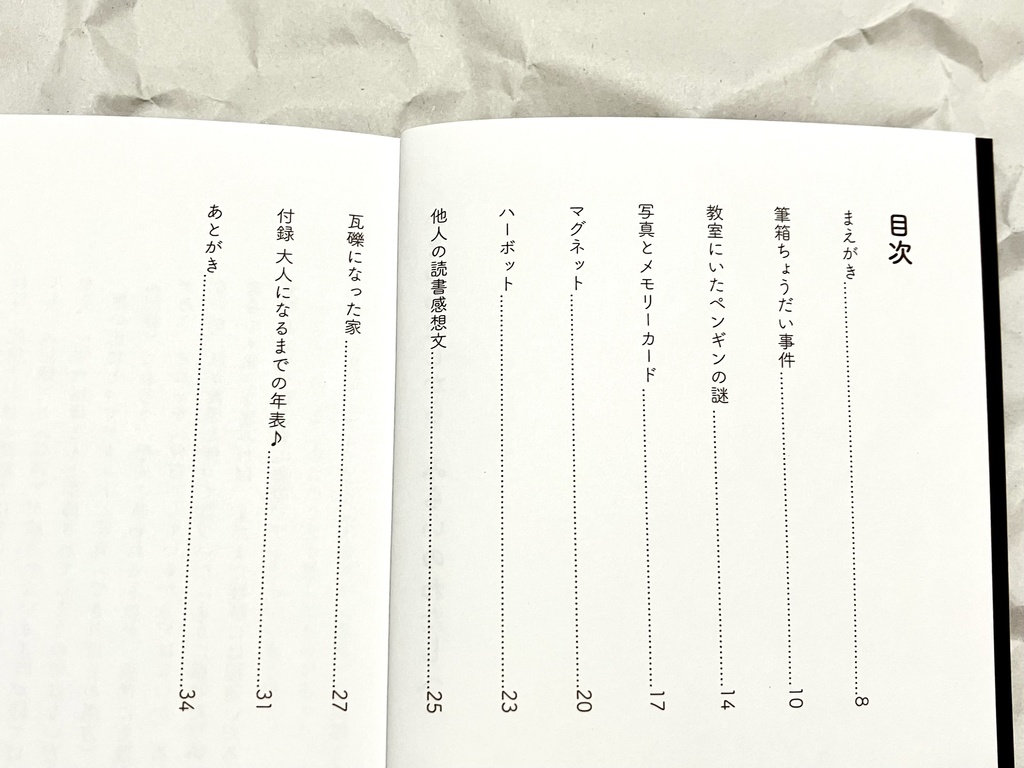 目次
まえがき……8
筆箱ちょうだい事件……10
教室にいたペンギンの謎……14
写真とメモリーカード……17
マグネット……20
ハーボット……23
他人の読書感想文……25
瓦礫になった家……27
付録 大人になるまでの年表♪……31
あとがき……34